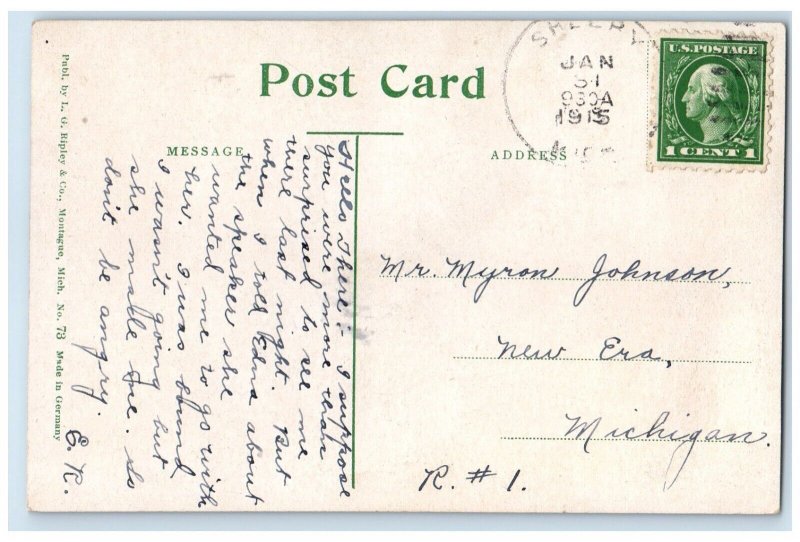 Post Card
MESSAGE
ADDRESS
JAN
31
930A
1915
MICH
U.S. POSTAGE
1 CENT 1
Mr. Myron Johnson,
New Era,
Michigan.
R. #1.
Hello There:- I suppose
you were more than
surprised to see me
there last night. But
when I told Edna about
the speaker she
wanted me to go with
her. I was bound
I wasn't going but
she made me. So
don't be angry.
E. R.
Publ. by L. G. Ripley & Co., Montague, Mich. No. 73 Made in Germany